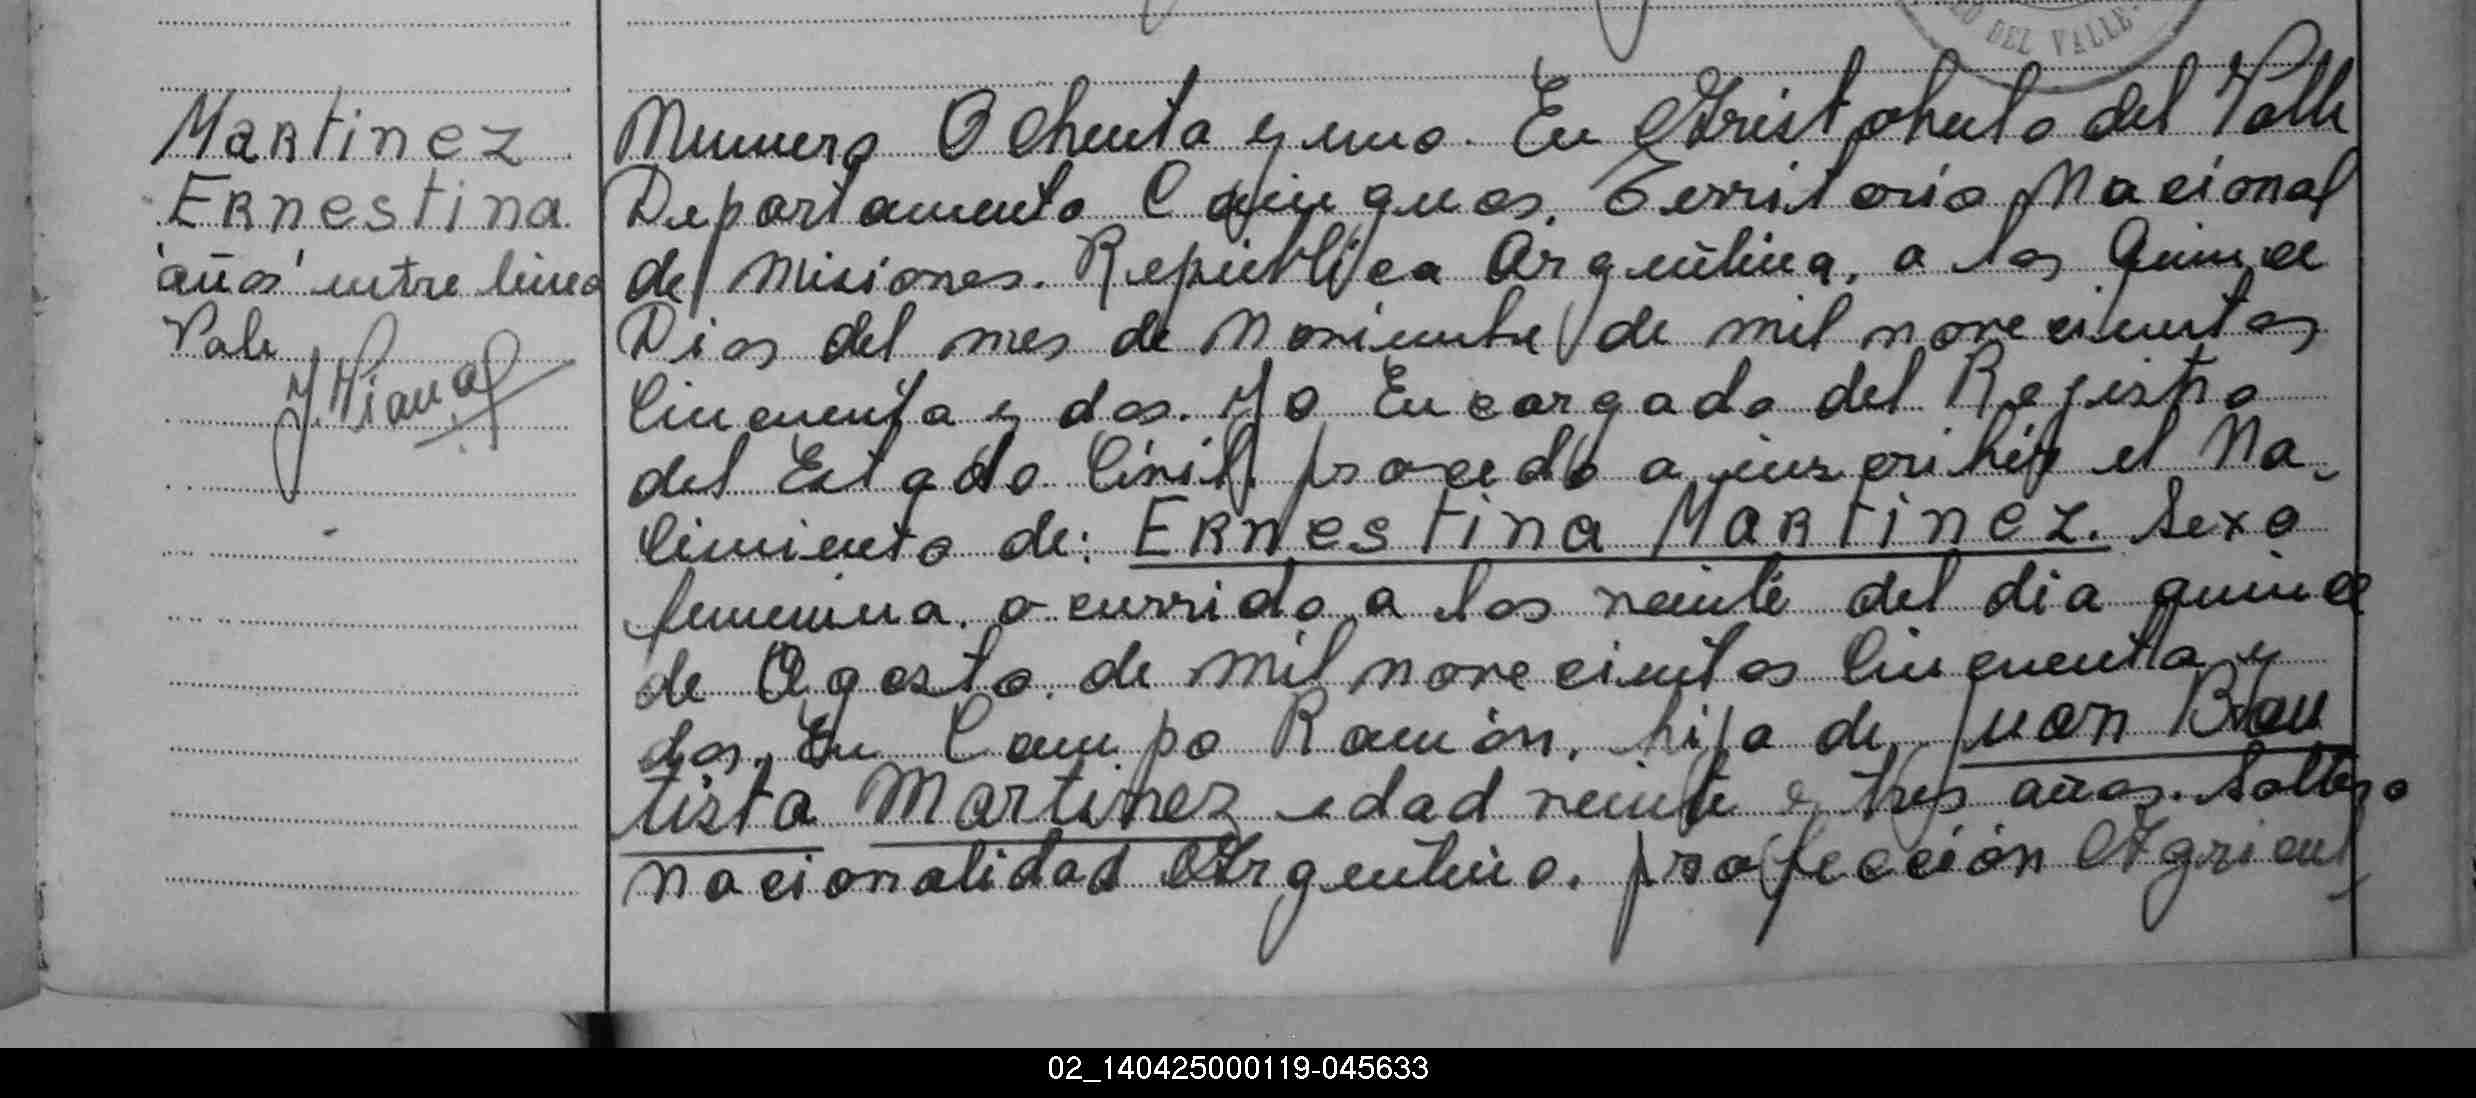 DEL VALLE
Martinez
Ernestina
"años" entre linea
Vale
Numero Ochenta y uno. En Aristobulo del Valle
Departamento Cainguas, Territorio Nacional
de Misiones. República Argentina, a los Quince
Dias del mes de Noviembre de mil novecientos
Cincuenta y dos. Yo Encargado del Registro
del Estado Civil, procedo a inscribir el Na-
cimiento de: ERNESTINA MARTINEZ. Sexo
femenina. ocurrido a las veinte del dia quince
de Agosto. de mil novecientos Cincuenta y
dos. En Campo Ramón. hija de Juan Bau
tista Martinez edad veinte y tres años. Soltero
nacionalidad Argentino. profección Agricul
02_140425000119-045633